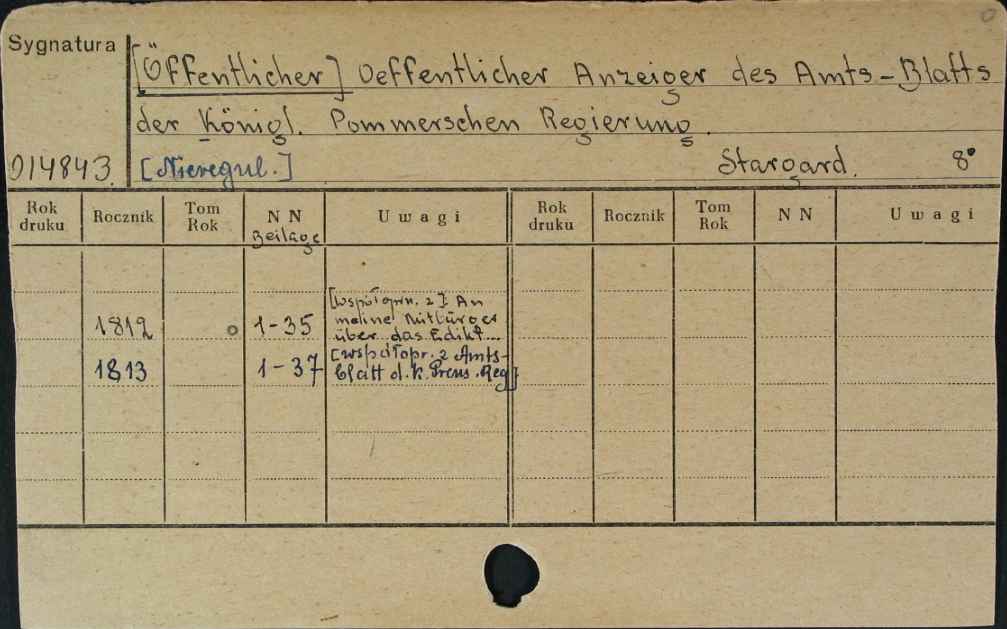 Sygnatura
[Öffentlicher] Oeffentlicher Anzeiger des Amts-Blatts
der Königl. Pommerschen Regierung.
014843. [Nieregul.] Stargard. 8°
Rok druku Rocznik Tom Rok NN Beilage Uwagi Rok druku Rocznik Tom Rok NN Uwagi
[Współopr. z]: An
1812 1-35 meine Mitbürger
über das Edikt...
[współopr. z Amts-
1813 1-37 blatt d. K. Preus. Reg]